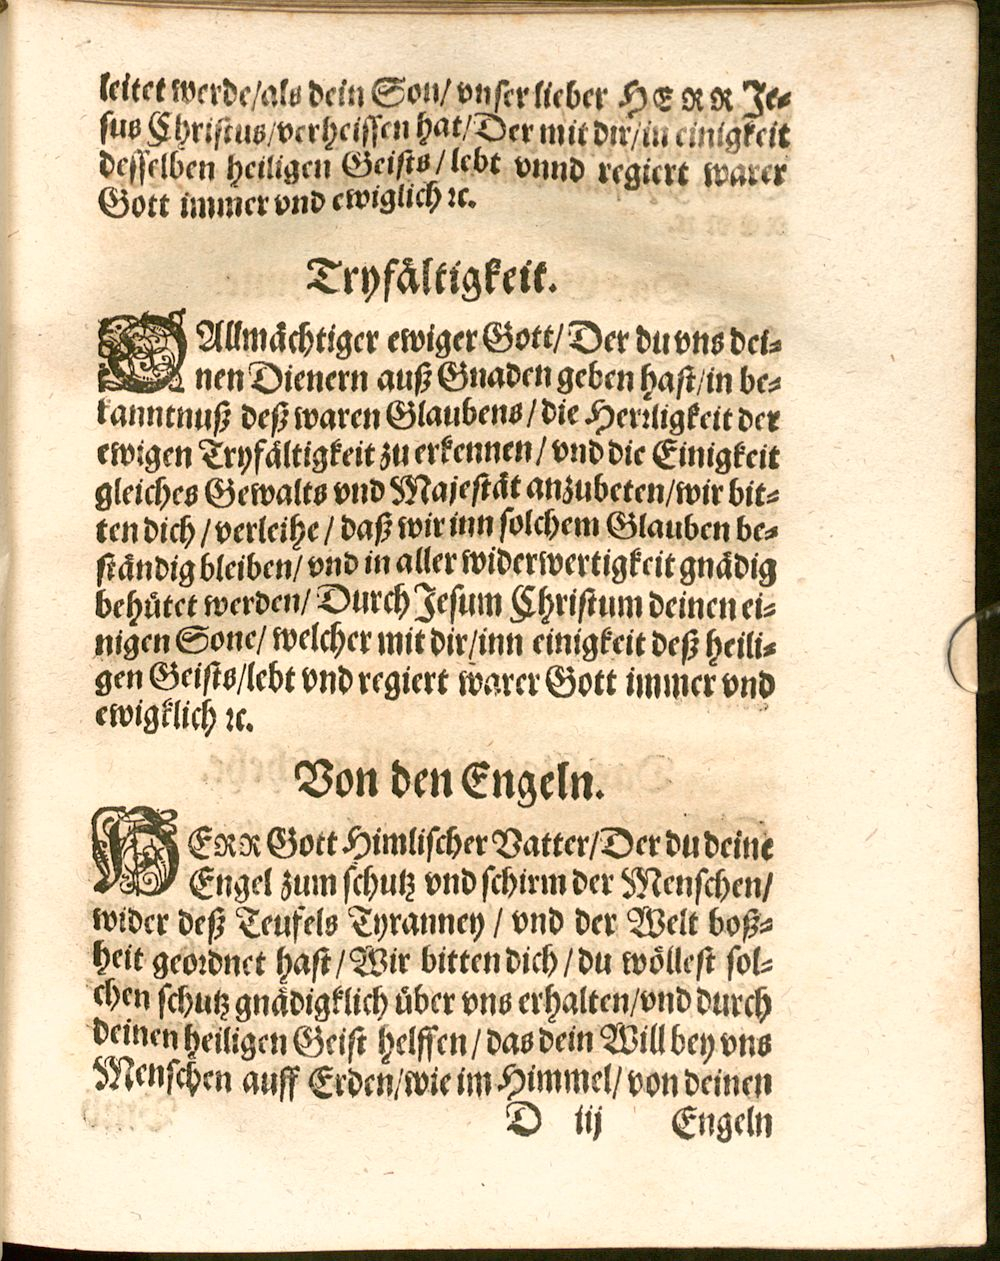 leitet werde/als dein Son/ vnser lieber HERR Je-
sus Christus/verheissen hat/Der mit dir/in einigkeit
desselben heiligen Geists/ lebt vnnd regiert warer
Gott immer vnd ewiglich ꝛc.
Tryfältigkeit.
O Allmächtiger ewiger Gott/ Der du vns dei-
nen Dienern auß Gnaden geben hast/in be-
kanntnuß deß waren Glaubens/ die Herꝛligkeit der
ewigen Tryfältigkeit zu erkennen/ vnd die Einigkeit
gleiches Gewalts vnd Majestät anzubeten/wir bit-
ten dich/ verleihe/ daß wir inn solchem Glauben be-
ständig bleiben/ vnd in aller widerwertigkeit gnädig
behütet werden/ Durch Jesum Christum deinen ei-
nigen Sone/ welcher mit dir/inn einigkeit deß heili-
gen Geists/lebt vnd regiert warer Gott immer vnd
ewigklich ꝛc.
Von den Engeln.
HERR Gott Himlischer Vatter/Der du deine
Engel zum schutz vnd schirm der Menschen/
wider deß Teufels Tyranney/ vnd der Welt boß-
heit geoꝛdnet hast/ Wir bitten dich/ du wöllest sol-
chen schutz gnädigklich über vns erhalten/vnd durch
deinen heiligen Geist helffen/ das dein Will bey vns
Menschen auff Erden/wie im Himmel/ von deinen
D iij Engeln